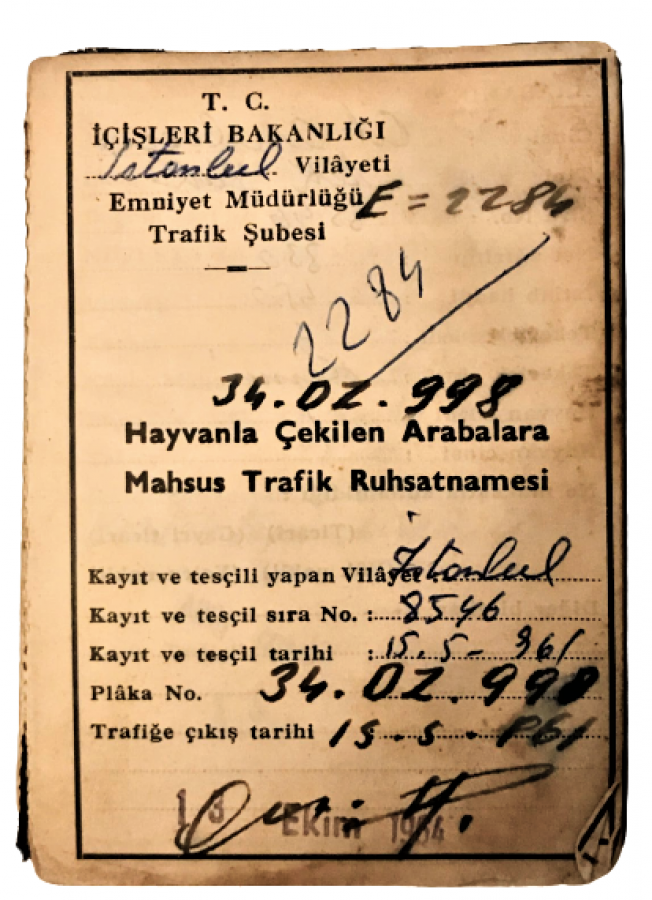 T. C.
İÇİŞLERİ BAKANLIĞI
İstanbul Vilâyeti
Emniyet Müdürlüğü E = 2284
Trafik Şubesi
2284
34.DZ.998
Hayvanla Çekilen Arabalara
Mahsus Trafik Ruhsatnamesi
Kayıt ve tesçili yapan Vilâyet İstanbul
Kayıt ve tesçil sıra No. : 8546
Kayıt ve tesçil tarihi : 15.5-961
Plâka No. 34.DZ.998
Trafiğe çıkış tarihi 15.5.961
13 Ekim 1964